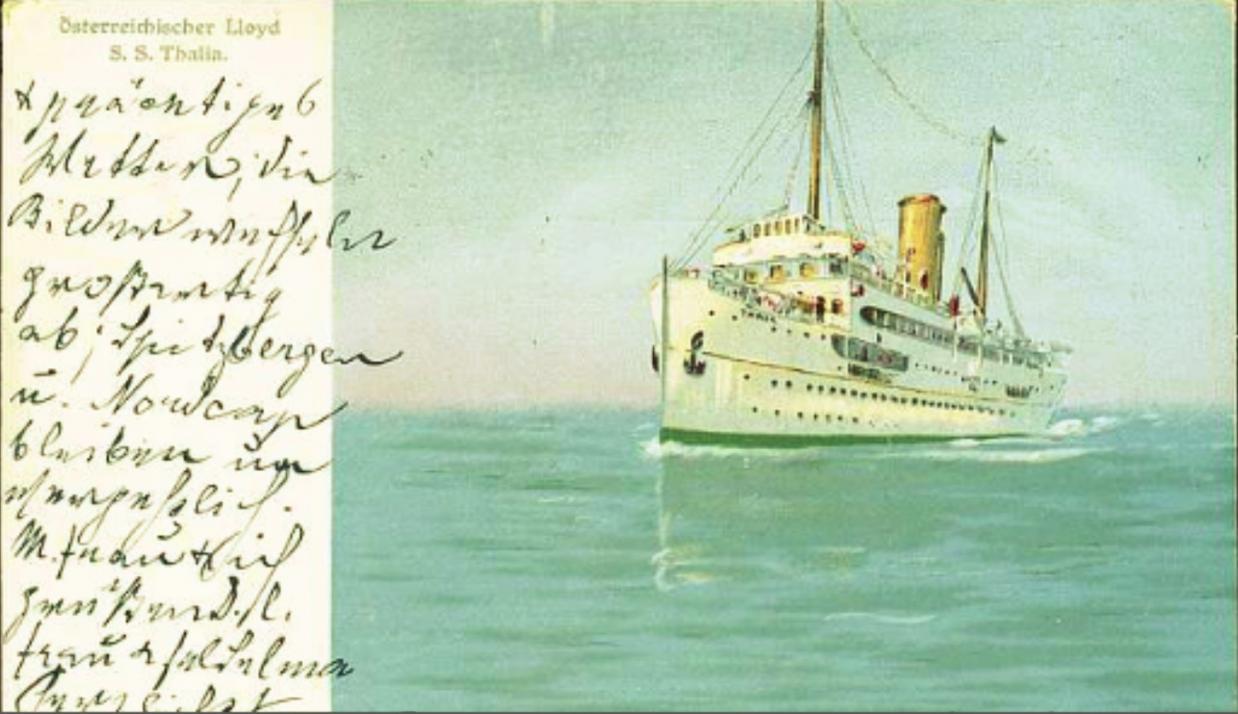 Österreichischer Lloyd
S. S. Thalia.
prächtiges
Wetter, die
Bilder wechseln
großartig
ab; Spitzbergen
u. Nordcap
bleiben un
vergeßlich.
M. Frau & ich
grüßen
Frau &
THALIA